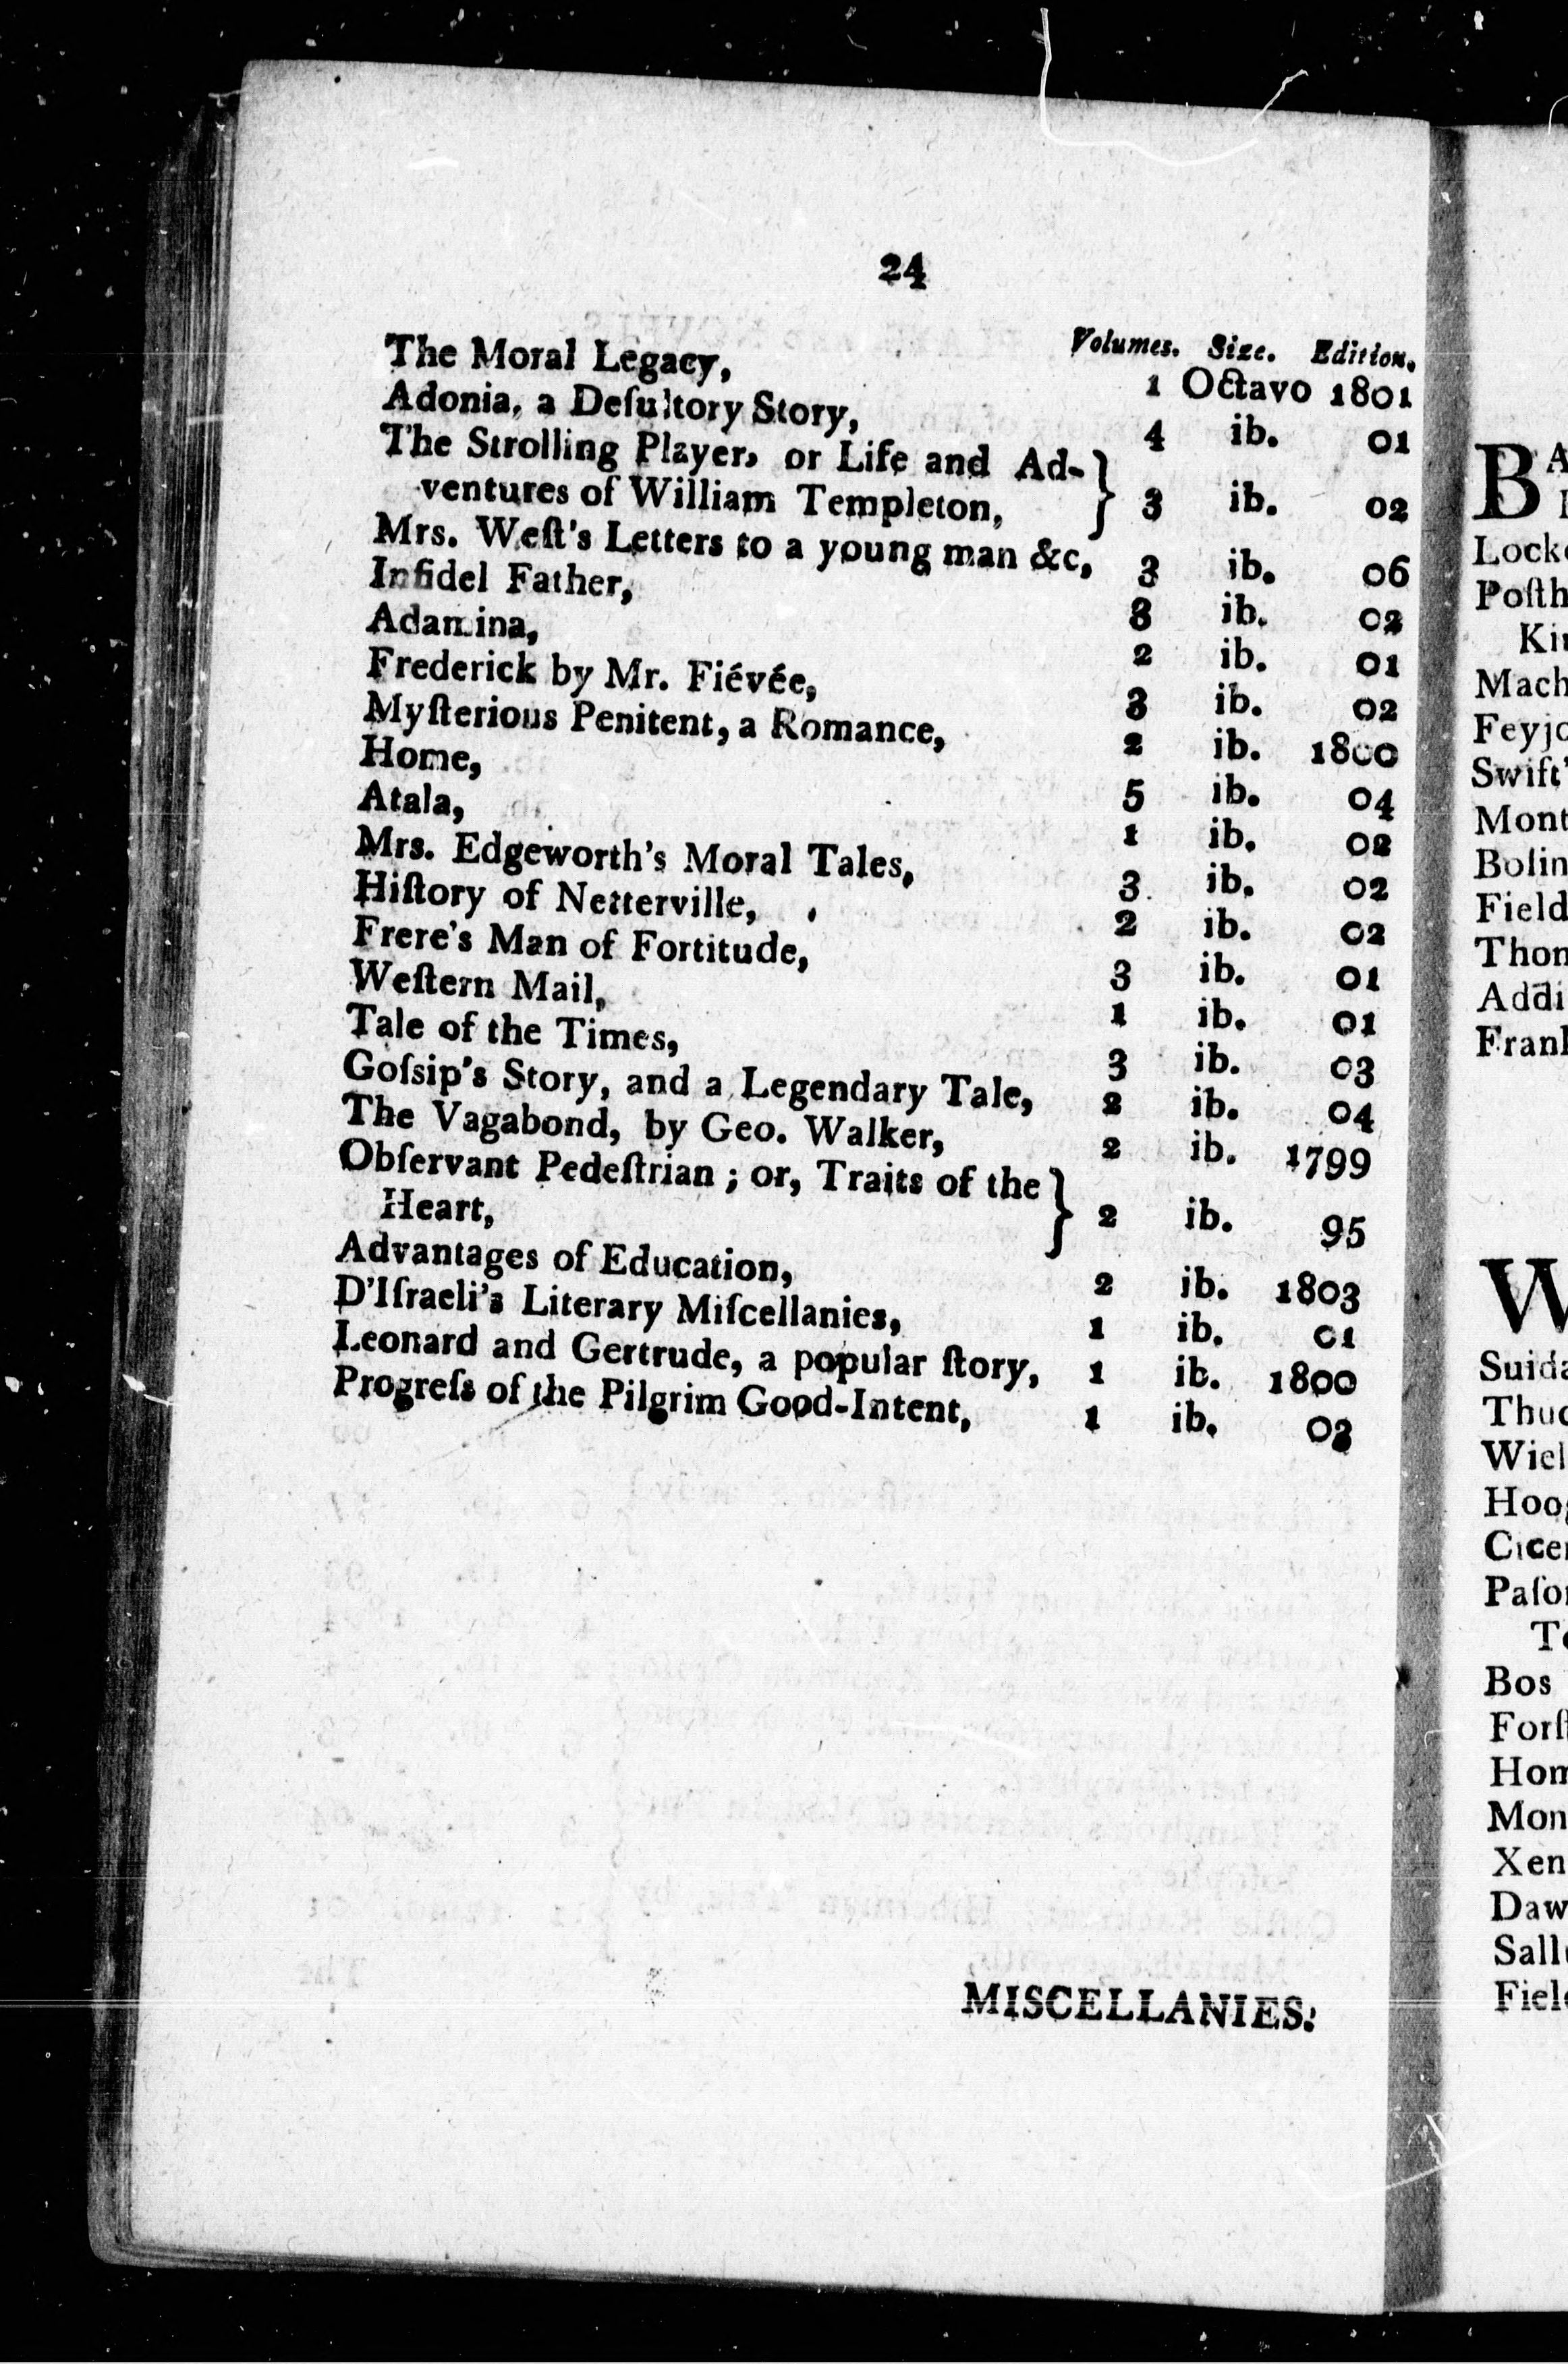 24
Volumes. Size. Edition.
The Moral Legacy, 1 Octavo 1801
Adonia, a Deſultory Story, 4 ib. 01
The Strolling Player, or Life and Ad-
ventures of William Templeton, } 3 ib. 02
Mrs. Weſt's Letters to a young man &c, 3 ib. 06
Infidel Father, 3 ib. 02
Adamina, 2 ib. 01
Frederick by Mr. Fiévée, 3 ib. 02
Myſterious Penitent, a Romance, 2 ib. 1800
Home, 5 ib. 04
Atala, 1 ib. 02
Mrs. Edgeworth's Moral Tales, 3 ib. 02
Hiſtory of Netterville, 2 ib. 02
Frere's Man of Fortitude, 3 ib. 01
Weſtern Mail, 1 ib. 01
Tale of the Times, 3 ib. 03
Goſsip's Story, and a Legendary Tale, 2 ib. 04
The Vagabond, by Geo. Walker, 2 ib. 1799
Obſervant Pedeſtrian ; or, Traits of the
Heart, } 2 ib. 95
Advantages of Education, 2 ib. 1803
D'Iſraeli's Literary Miſcellanies, 1 ib. 01
Leonard and Gertrude, a popular ſtory, 1 ib. 1800
Progreſs of the Pilgrim Good-Intent, 1 ib.
MISCELLANIES.
B A
Locke
Poſth
Kin
Mach
Feyjo
Swift'
Mont
Bolin
Field
Thom
Addi
Frank
W
Suida
Thuc
Wiel
Hoog
Cicer
Paſor
Te
Bos
Forſt
Hom
Mon
Xen
Daw
Sallu
Field